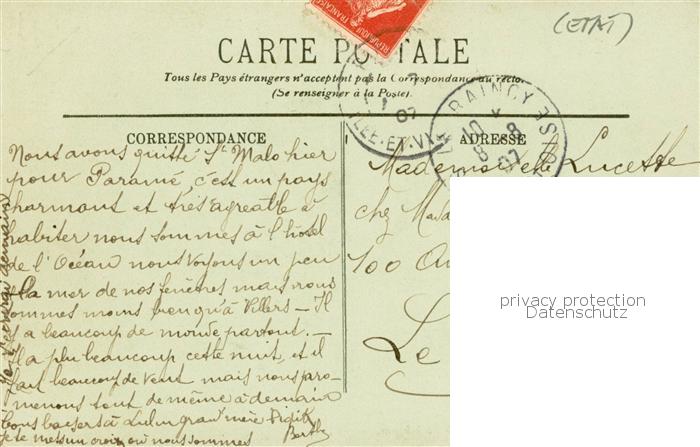 (ETAT)
RÉPUBLIQUE FRANÇAISE
CARTE POSTALE
Tous les Pays étrangers n'acceptent pas la Correspondance au recto.
(Se renseigner à la Poste).
07
ILLE-ET-V
LE RAINCY S
10 8
8 07
CORRESPONDANCE
Nous avons quitté St Malo hier
pour Paramé, c'est un pays
charmant et très agréable à
habiter nous sommes à l'hôtel
de l'Océan nous voyons un peu
la mer de nos fenêtres mais nous
sommes moins bien qu'à Villers — Il
y a beaucoup de monde partout. —
Il a plu beaucoup cette nuit, et il
fait beaucoup de vent mais nous pro-
menons tout de même à demain
bons baisers à Lulu grand'mère Didik
je te mets un croix où nous sommes Berthe
ADRESSE
Mademoiselle Lucette
chez Mada
100 Av
Le
privacy protection
Datenschutz